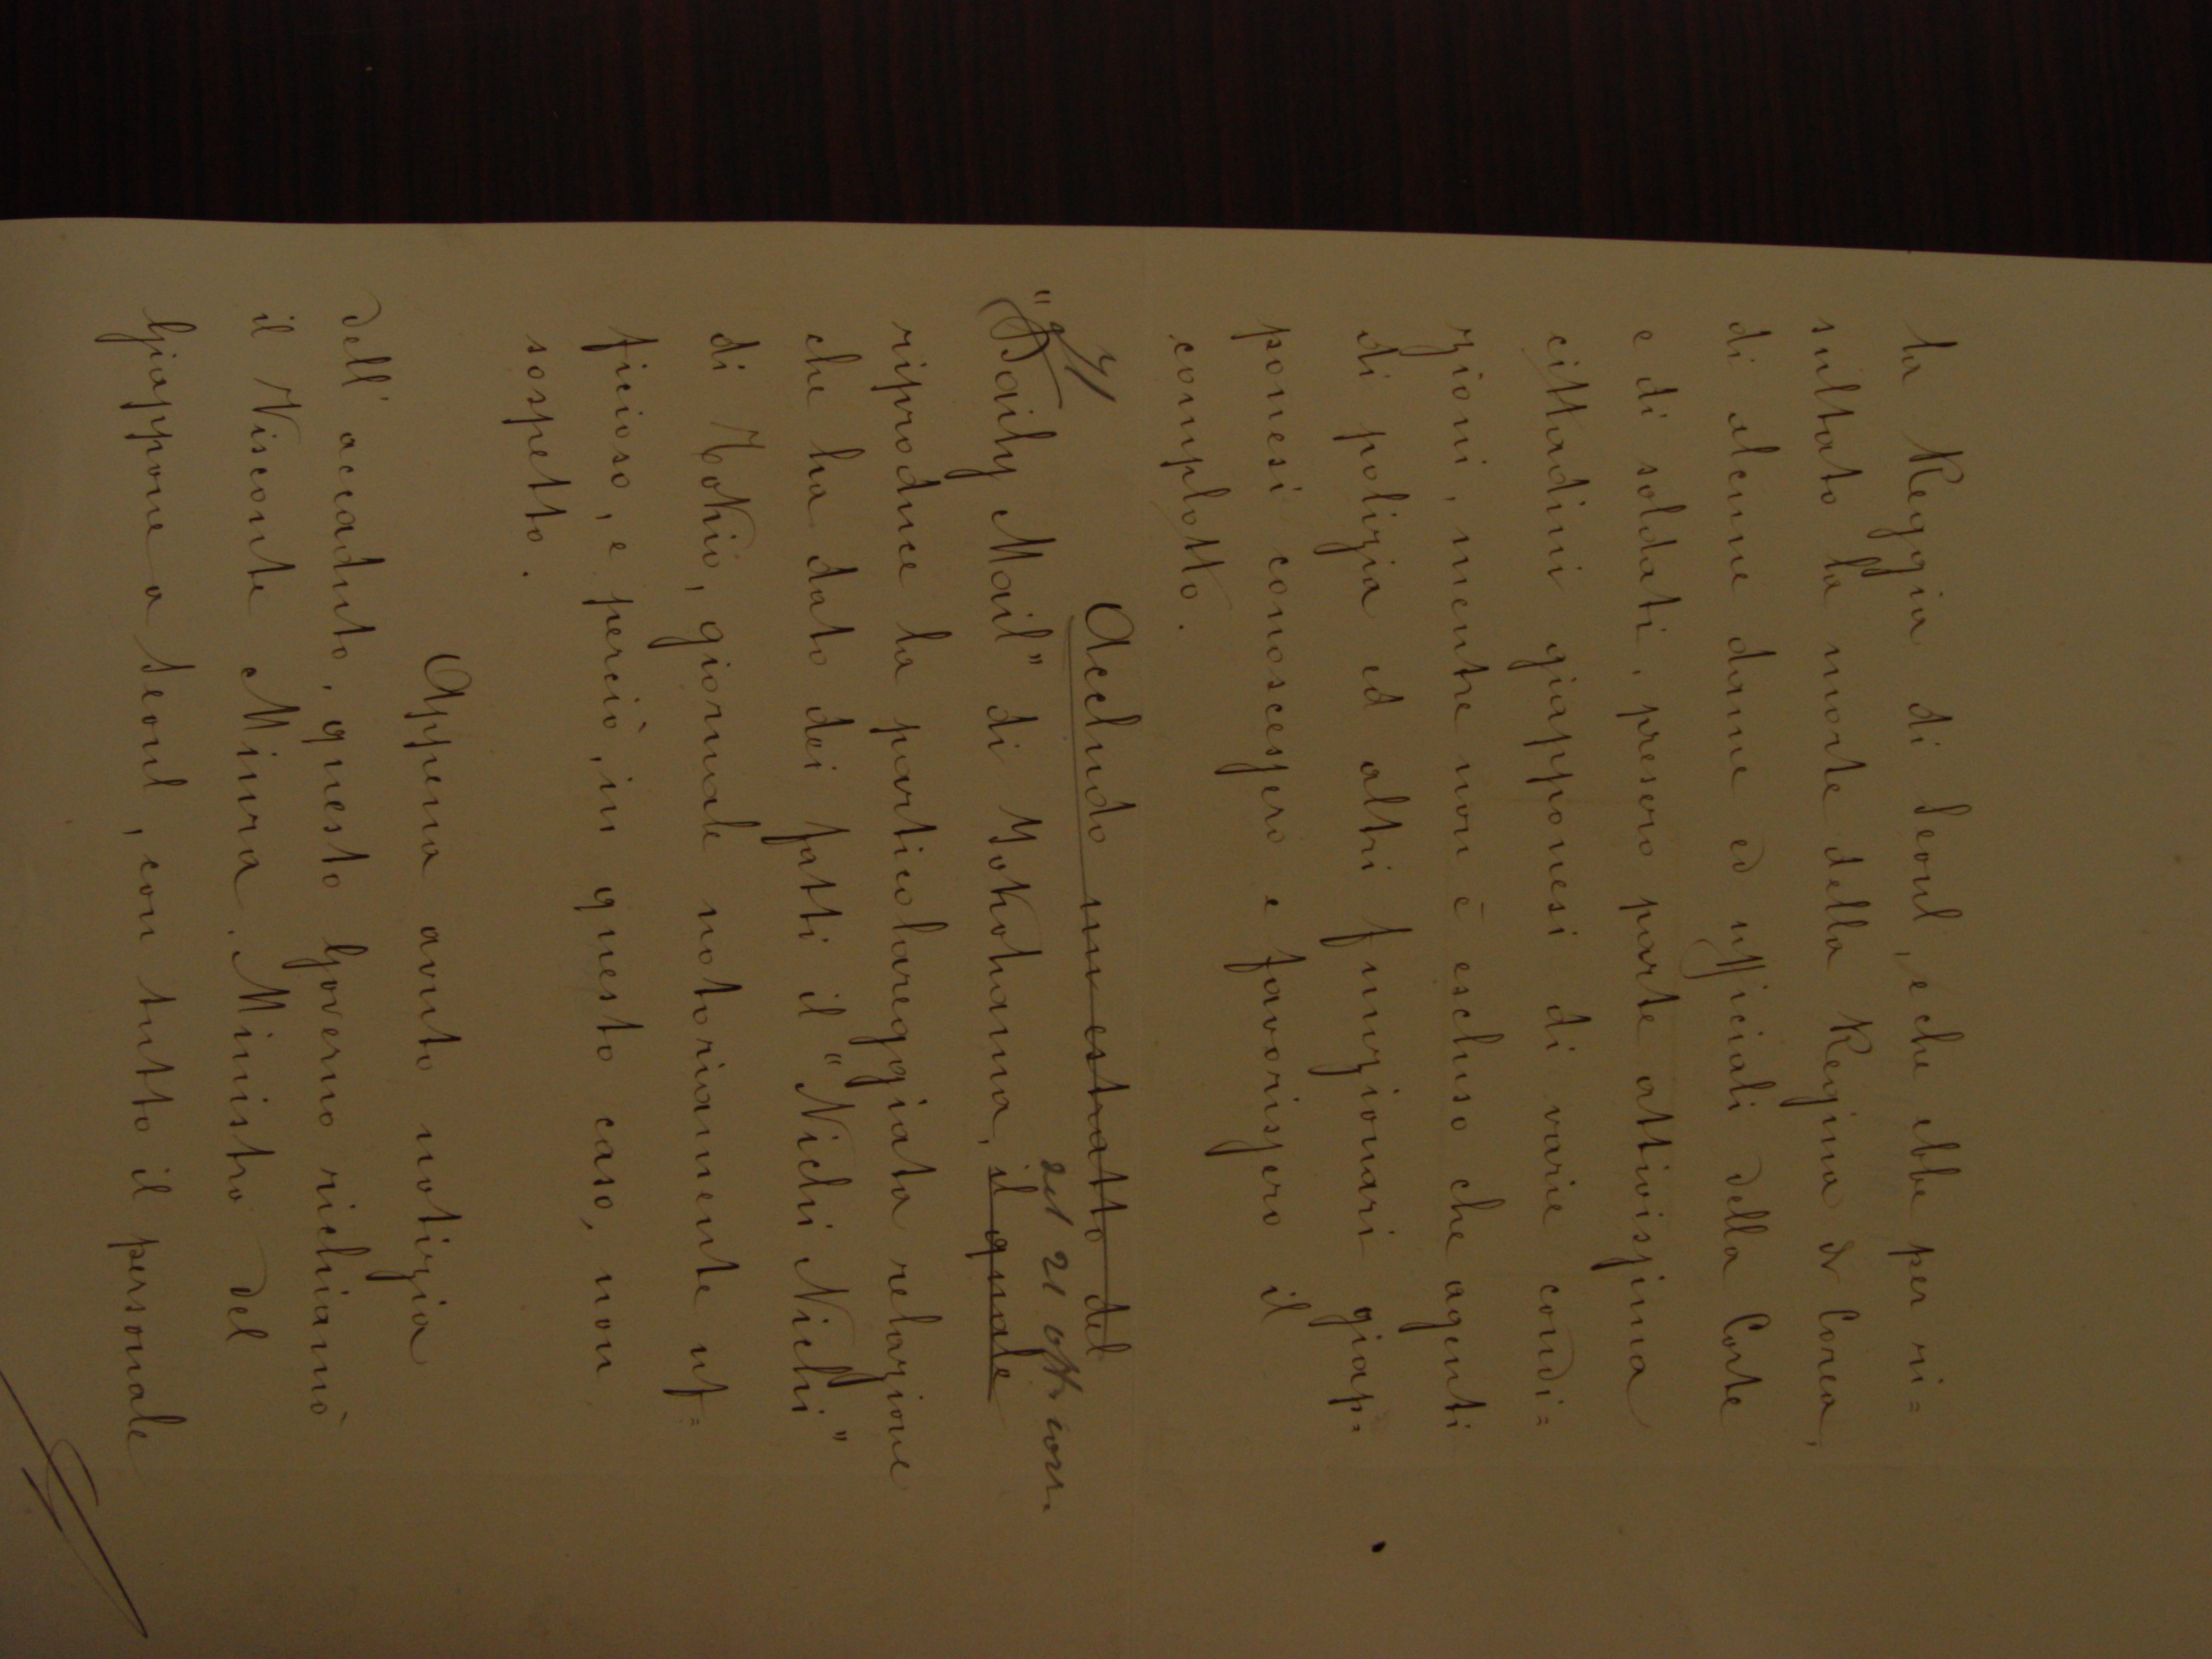 la Reggia di Seoul, e che ebbe per ri=
sultato la morte della Regina di Corea,
di alcune dame ed ufficiali della Corte
e di soldati, presero parte attivissima
cittadini giapponesi di varie condi=
zioni, mentre non è escluso che agenti
di polizia ed altri funzionari giap=
ponesi conoscessero e favorissero il
complotto.
Accludo un estratto del
Il "Daily Mail" di Yokohama, il quale
del 21 ott. corr.
riproduce la particolareggiata relazione
che ha dato dei fatti il "Nichi Nichi"
di Tokio, giornale notoriamente uf=
ficioso, e perciò, in questo caso, non
sospetto.
Appena avuto notizia
dell'accaduto, questo Governo richiamò
il Visconte Miura, Ministro del
Giappone a Seoul, con tutto il personale